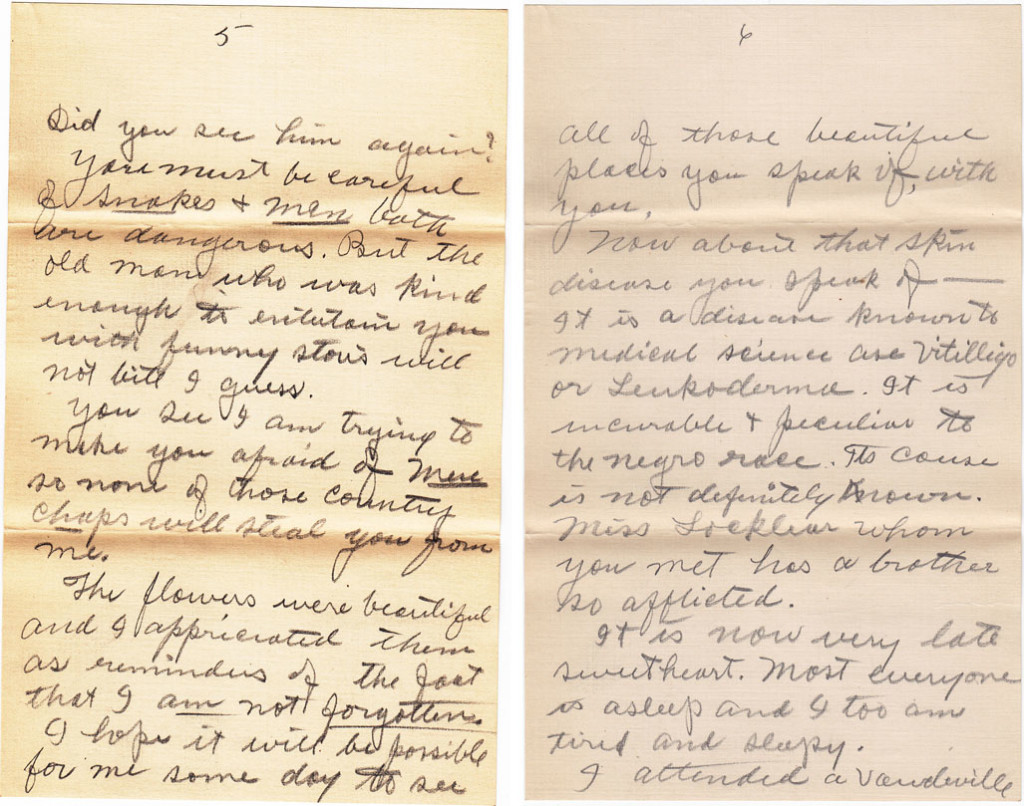 5
Did you see him again?
You must be careful
of snakes & men both
are dangerous. But the
old man who was kind
enough to entertain you
with funny stories will
not bite I guess.
You see I am trying to
make you afraid of Men
so none of those country
chaps will steal you from
me.
The flowers were beautiful
and I appriciated them
as reminders of the fact
that I am not forgotten.
I hope it will be possible
for me some day to see
6
all of those beautiful
places you speak of, with
you.
Now about that skin
disease you speak of —
It is a disease known to
medical science as Vitilligo
or Leukoderma. It is
incurable & peculiar to
the negro race. Its cause
is not definitely known.
Miss Locklear whom
you met has a brother
so afflicted.
It is now very late
sweetheart. Most everyone
is asleep and I too am
tired and sleepy.
I attended a Vaudeville